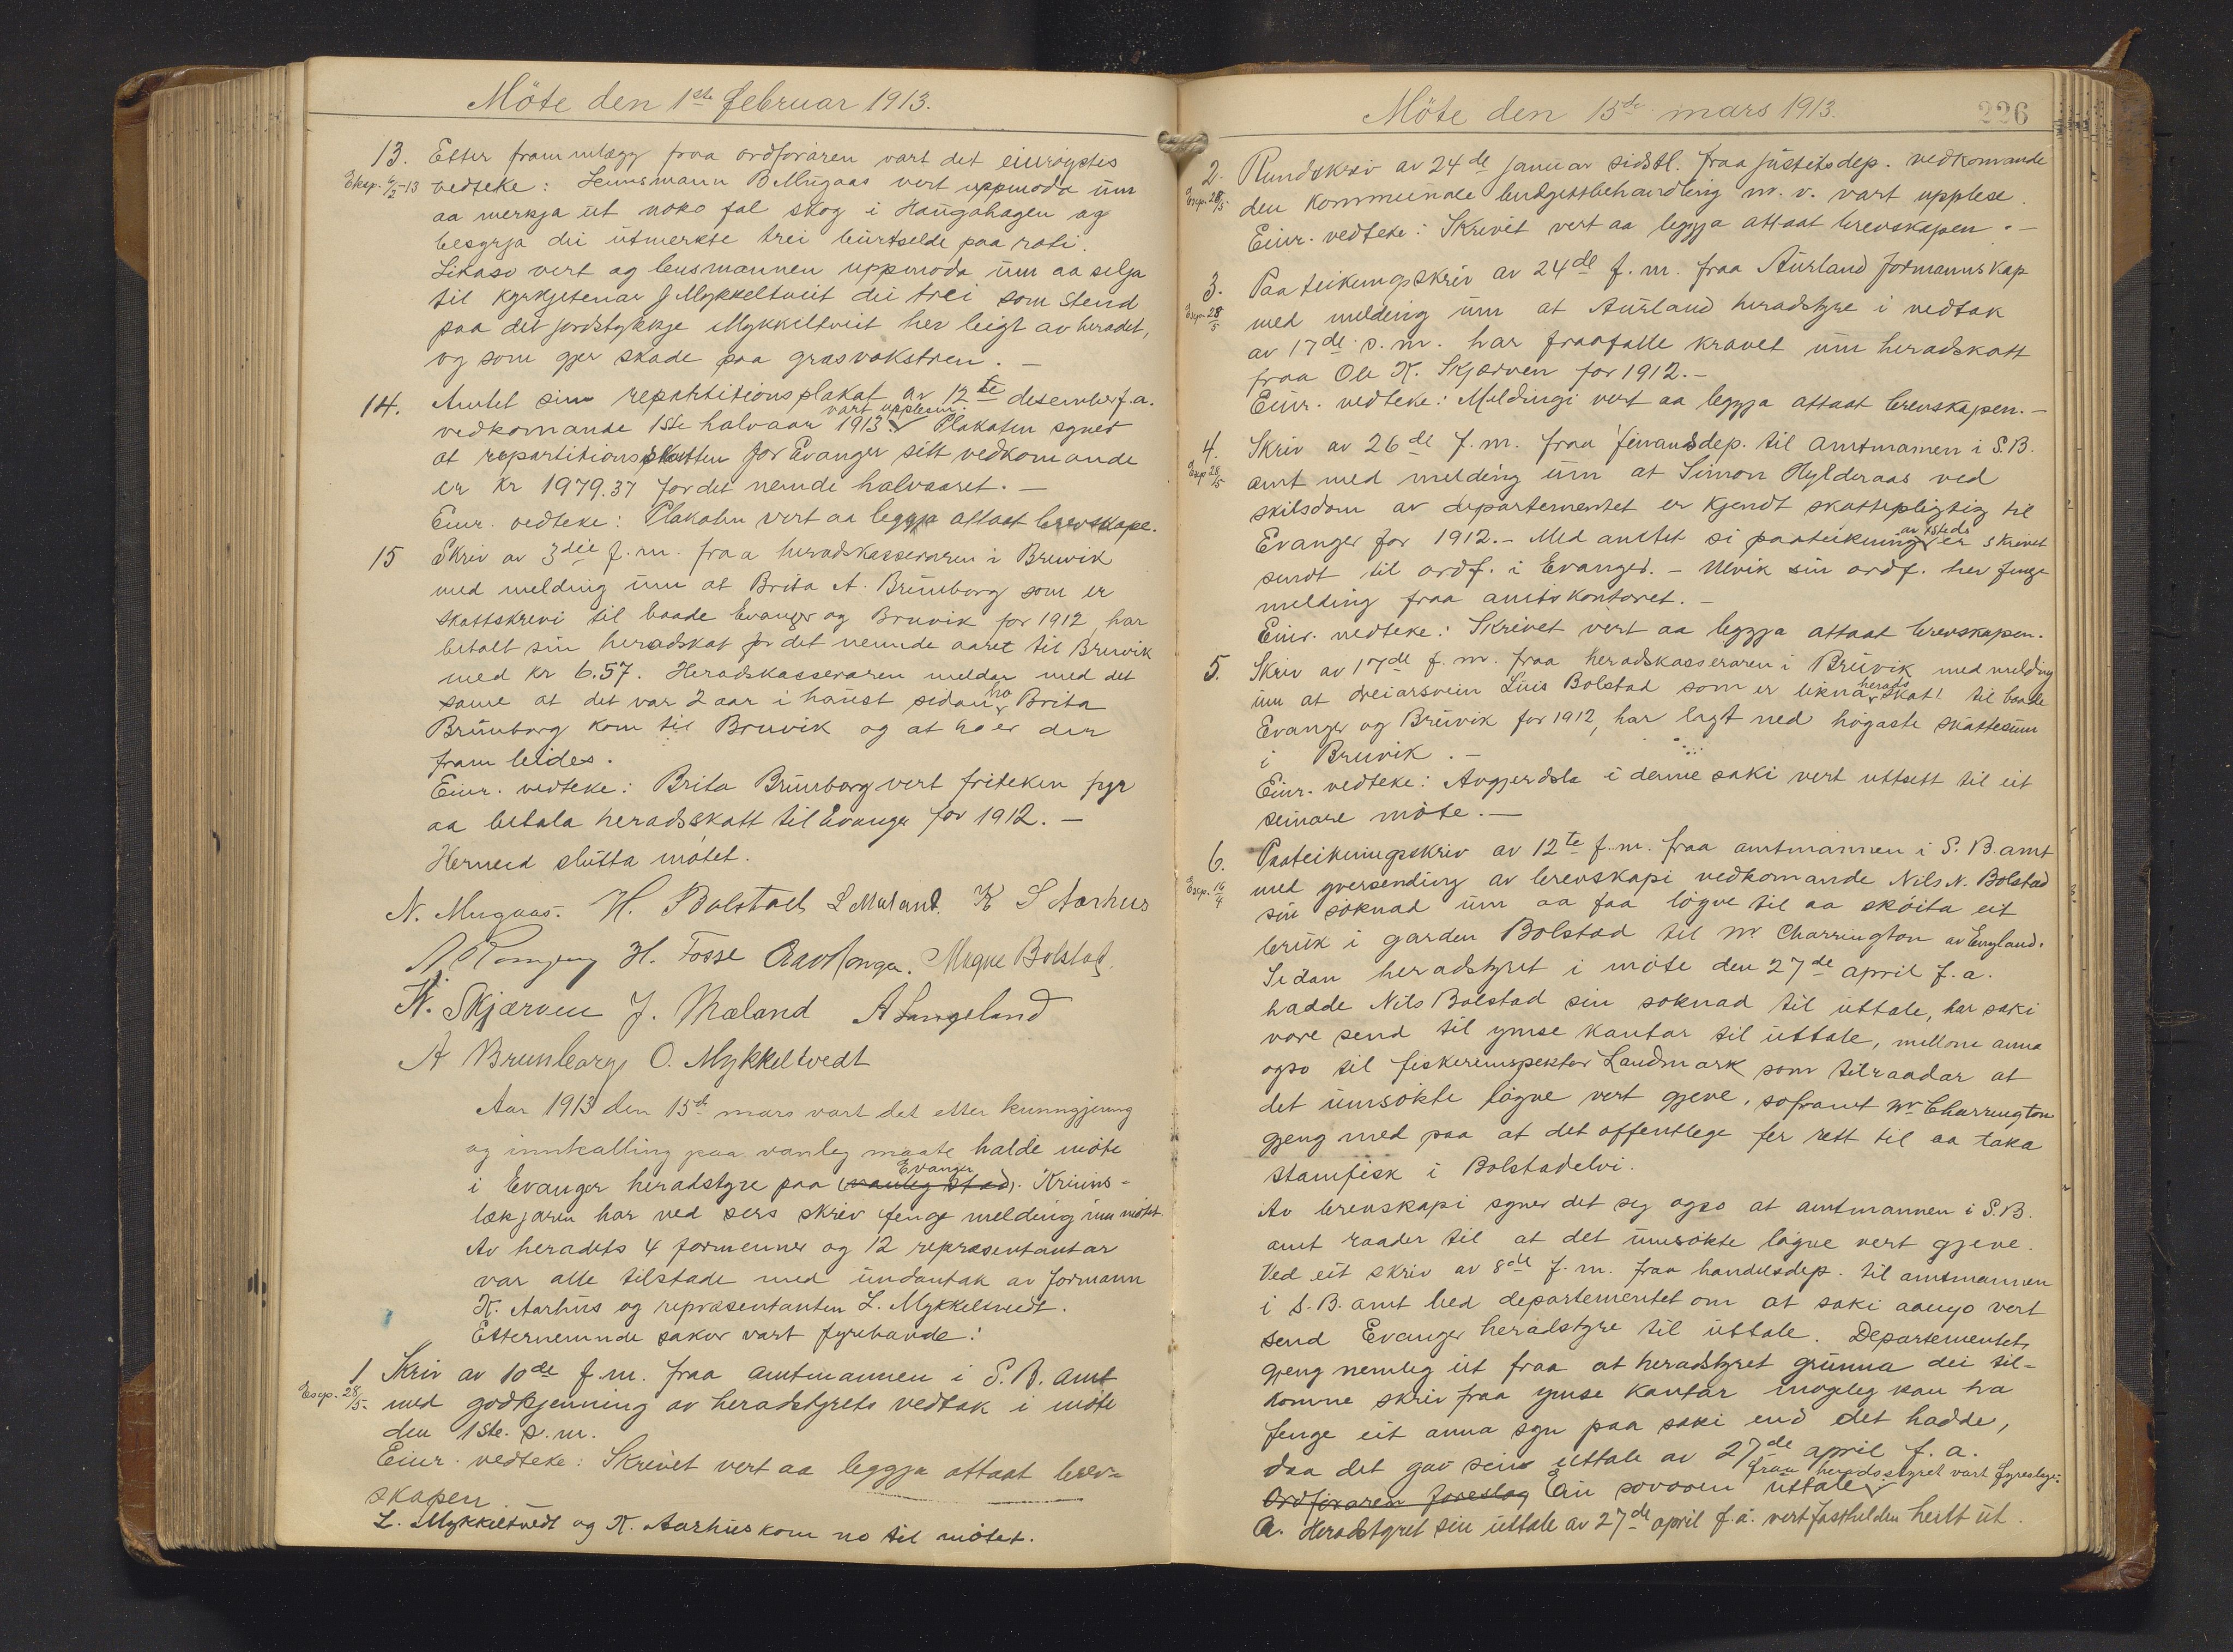 Möte den 1ste februar 1913.
13. Etter frammlegg fraa ordföraren vart det einrögstes
Eksp. 6/2-13 vedteke: Lennsmann B Mugaas vert uppmoda um
aa merkja ut noko fal skog i Haugahagen og
besyrja dei utmerkte trei burtselde paa roti.
Likaso vert og lensmannen uppmoda um aa selja
til kyrkjetenar J Mykkeltveit dei trei som stend
paa det jordstykkje Mykkeltveit hev leigt av heradet,
og som gjer skade paa grasvokstren. -
14. Amtet sin repartitionsplakat av 12te desember f.a.
vart upplesen.
vedkomande 1ste halvaar 1913. Plakaten syner
at repartitionsskatten for Evanger sitt vedkomande
er kr 1979.37 for det nemde halvaaret. -
Einr. vedteke: Plakaten vert aa leggja attaat brevskape.
15 Skriv av 3die f.m. fraa heradskasseraren i Bruvik
med melding um at Brita A. Brunborg som er
skattskrevi til baade Evanger og Bruvik for 1912, har
betalt sin heradskat for det nemde aaret til Bruvik
med kr 6.57. Heradskasseraren meldar med det
same at det var 2 aar i haust sidan ho Brita
Brunborg kom til Bruvik og at ho er der
fram leides.
Einr. vedteke: Brita Brunborg vert friteken fyr
aa betala heradsskatt til Evanger for 1912. -
Hermed slutta mötet.
N. Mugaas. H. Bolstad L Mæland. K S Aarhus
H. Fosse Magne Bolstad.
K. Skjærven J. Mæland A Langeland
A Brunborg O. Mykkeltvedt
Aar 1913 den 15de mars vart det etter kunngjering
og innkalling paa vanleg maate halde möte
Evanger
i Evanger heradstyre paa vanleg stad. Kriins-
lækjaren har ved sers skriv fenge melding um mötet.
Av heradets 4 formenner og 12 representantar
var alle tilstade med undantak av formann
K. Aarhus og representanten L. Mykkeltvedt.
Etternemnde sakor vart fyrehavde:
1 Skriv av 10de f.m. fraa amtmannen i S.B. amt
Exsp. 28/5. med godkjenning av heradstyrets vedtak i möte
den 1ste s.m.
Einr. vedteke: Skrivet vert aa leggja attaat brev-
skapen. -
L. Mykkeltvedt og K. Aarhus kom no til mötet.
Möte den 15de mars 1913.
226
2. Rundskriv av 24de januar sidstl. fraa justitsdep. vedkomande
Exsp. 28/5. den kommunale budgettbehandling m.v. vart upplese.
Einr. vedteke: Skrivet vert aa leggja attaat brevskapen. -
3. Paateikningsskriv av 24de f.m. fraa Aurland formannskap
Exsp. 28/5 med melding um at Aurland heradstyre i vedtak
av 17de s.m. har fraafalle kravet um heradskatt
fraa Ole K. Skjærven for 1912. -
Einr. vedteke: Meldingi vert aa leggja attaat brevskapen. -
4. Skriv av 26de f.m. fraa finansdep. til amtmannen i S.B.
Exsp 28/5 amt med melding um at Simon Hylderaas ved
skilsdom av departementet er kjendt skattepligtig til
Evanger for 1912. - Med amtet si paateikning er skrivet
sendt til ordf. i Evanger. - Ulvik sin ordf. hev fenge
melding fraa amtskontoret. -
Einr. vedteke: Skrivet vert aa leggja attaat brevskapen.
5. Skriv av 17de f.m. fraa heradskasseraren i Bruvik med melding
herads
um at dreiarsvein Luis Bolstad som er likna skat til baade
Evanger og Bruvik for 1912, har lagt ned högaste skattesum
i Bruvik. -
Einr. vedteke: Avgjerdsla i denne saki vert uttsett til eit
seinare möte. -
6. Paateikningsskriv av 12te f.m. fraa amtmannen i S.B. amt
Exsp. 16/4 med yversending av brevskapi vedkomande Nils N. Bolstad
sin söknad um aa faa lögve til aa sköita eit
bruk i garden Bolstad til Mr Charrington av England.
Sidan heradstyret i möte den 27de april f.a.
hadde Nils Bolstad sin söknad til uttale, har saki
vore send til ymse kantar til uttale, millom anna
ogso til fiskeriinspektör Landmark som tilraadar at
det umsökte lögve vert gjeve, soframt Mr Charrington
gjeng med paa at det offentlege fer rett til aa taka
stamfisk i Bolstadelvi.
Av brevskapi syner det seg ogso at amtmannen i S.B.
amt raader til at det umsökte lögve vert gjeve.
Ved eit skriv av 8de f.m. fraa handelsdep. til amtmannen
i S.B. amt bed departementet om at saki aanyo vert
send Evanger heradstyre til uttale. Departementet
gjeng nemleg ut fraa at heradstyret grunna dei til-
komne skriv fraa ymse kantar mögeleg kan ha
fenge eit anna syn paa saki end det hadde,
daa det gav sin uttale av 27de april f.a.
fraa heradsstyret vart fyreslegi:
Ordföraren foreslog Ein sovoren uttale
a. Heradstyret sin uttale av 27de april f.a. vert fasthelden heilt ut.